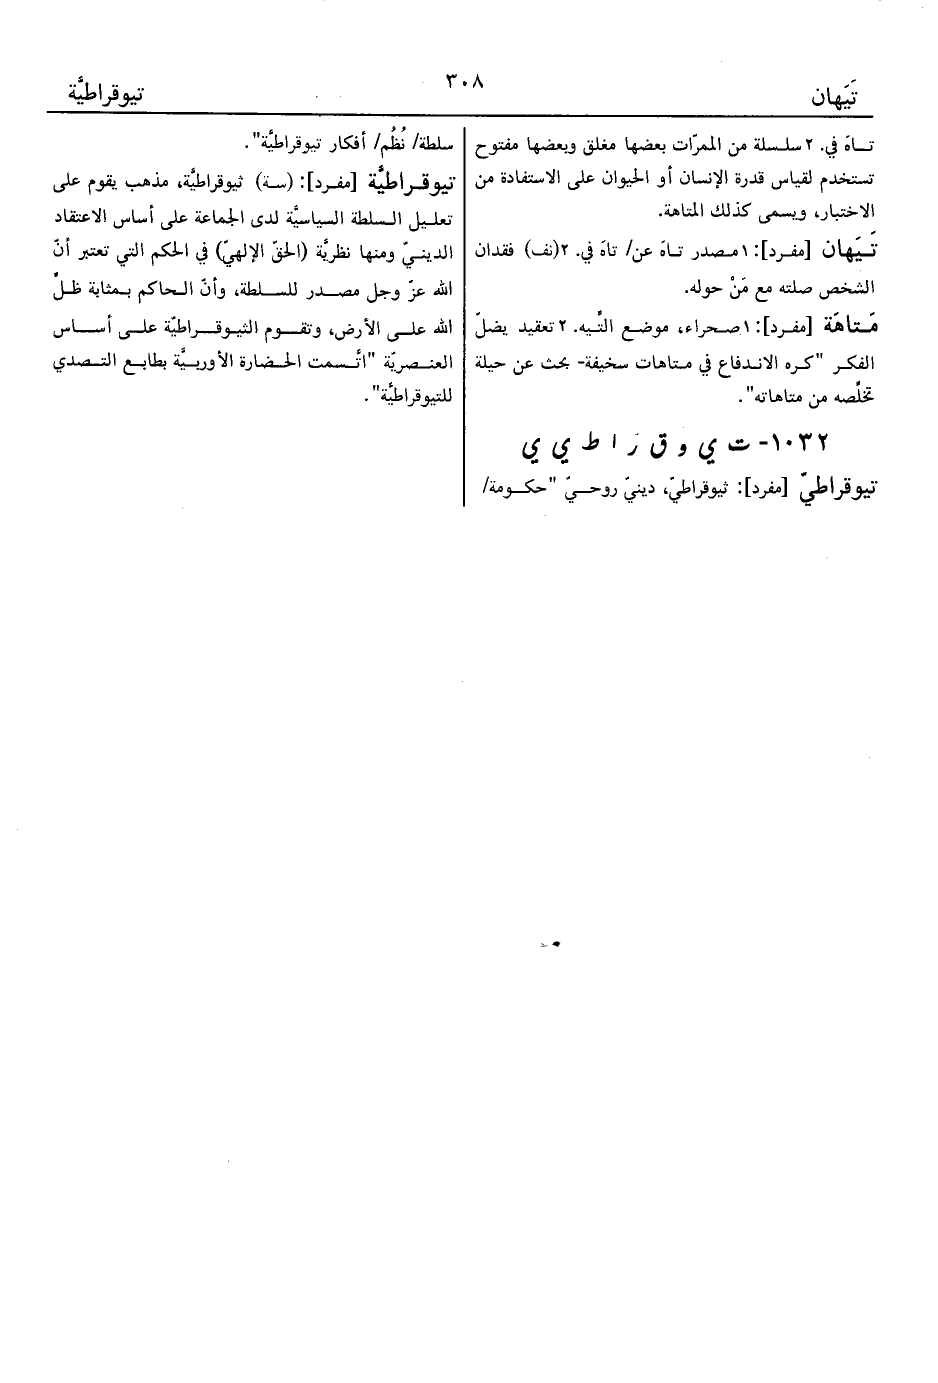 تَيَهان
٣٠٨
تيوقراطيَّة
تـاهَ في. ٢ سلسلة من الممرّات بعضها مغلق وبعضها مفتوح
تستخدم لقياس قدرة الإنسان أو الحيوان على الاستفادة من
الاختبار، ويسمى كذلك المتاهة.
تَيَهان [مفرد]: ١ مصدر تاهَ عن/ تاهَ في. ٢ (نف) فقدان
الشخص صلته مع مَنْ حوله.
مَتاهَة [مفرد]: ١ صحراء، موضع التِّيه. ٢ تعقيد يضلّ
الفكر "كره الاندفاع في متاهات سخيفة- بحث عن حيلة
تخلِّصه من متاهاته".
١٠٣٢- ت ي و ق ر ا ط ي ي
تيوقراطيّ [مفرد]: ثيوقراطيّ، دينيّ روحيّ "حكومة/
سلطة/ نُظُم/ أفكار تيوقراطيَّة".
تيوقراطيَّة [مفرد]: (سة) ثيوقراطيَّة، مذهب يقوم على
تعليل السلطة السياسيَّة لدى الجماعة على أساس الاعتقاد
الدينيّ ومنها نظريَّة (الحقّ الإلهيّ) في الحكم التي تعتبر أنّ
الله عزّ وجل مصدر للسلطة، وأنّ الحاكم بمثابة ظلّ
الله على الأرض، وتقوم الثيوقراطيّة على أساس
العنصريّة "اتَّسمت الحضارة الأوربيَّة بطابع التصدي
للتيوقراطيَّة".